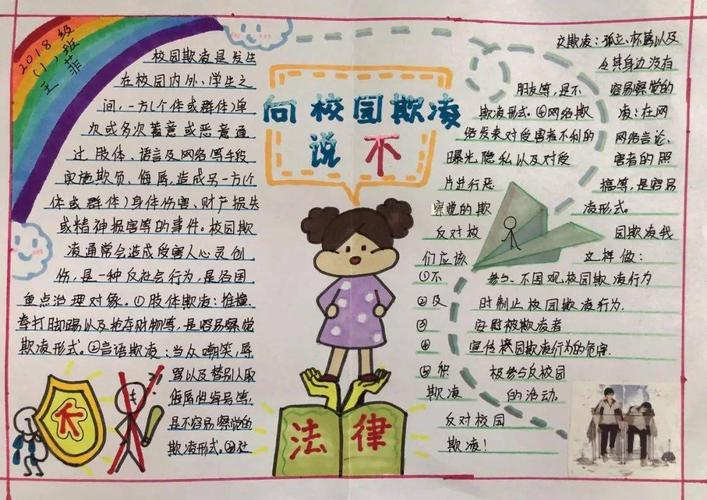 2018级
(1)班
王菲
校园欺凌是发生
在校园内外、学生之
间，一方(个体或群体)单
次或多次蓄意或恶意通
过肢体、语言及网络等手段
实施欺负、侮辱,造成另一方(个
体或群体)身体伤害、财产损失
或精神损害等的事件。校园欺
凌通常会造成受害人心灵创
伤，是一种反社会行为，是各国
重点治理对象。①肢体欺凌：推撞、
拳打脚踢以及抢夺财物等，是容易察觉
欺凌形式。②言语欺凌：当众嘲笑、辱
骂以及替别人取
侮辱性绰号等，
是不容易察觉的
欺凌形式。③社
向校园欺凌
说不
法律
交欺凌：孤立、杯葛以及
令其身边没有
朋友等，是不 容易察觉的
欺凌形式。④网络欺 凌：在网
络发表对受害者不利的 网络言论、
曝光隐私以及对受 害者的照
片进行恶 搞等，是容易
察觉的欺 凌形式。
反对校 园欺凌我
们应该 这样做：
①不 参与、不围观校园欺凌行为
②及 时制止校园欺凌行为.
③ 安慰被欺凌者
④ 宣传校园欺凌行为的危害.
⑤积 极参与反校园
欺凌 的活动.
反对校园
欺凌！